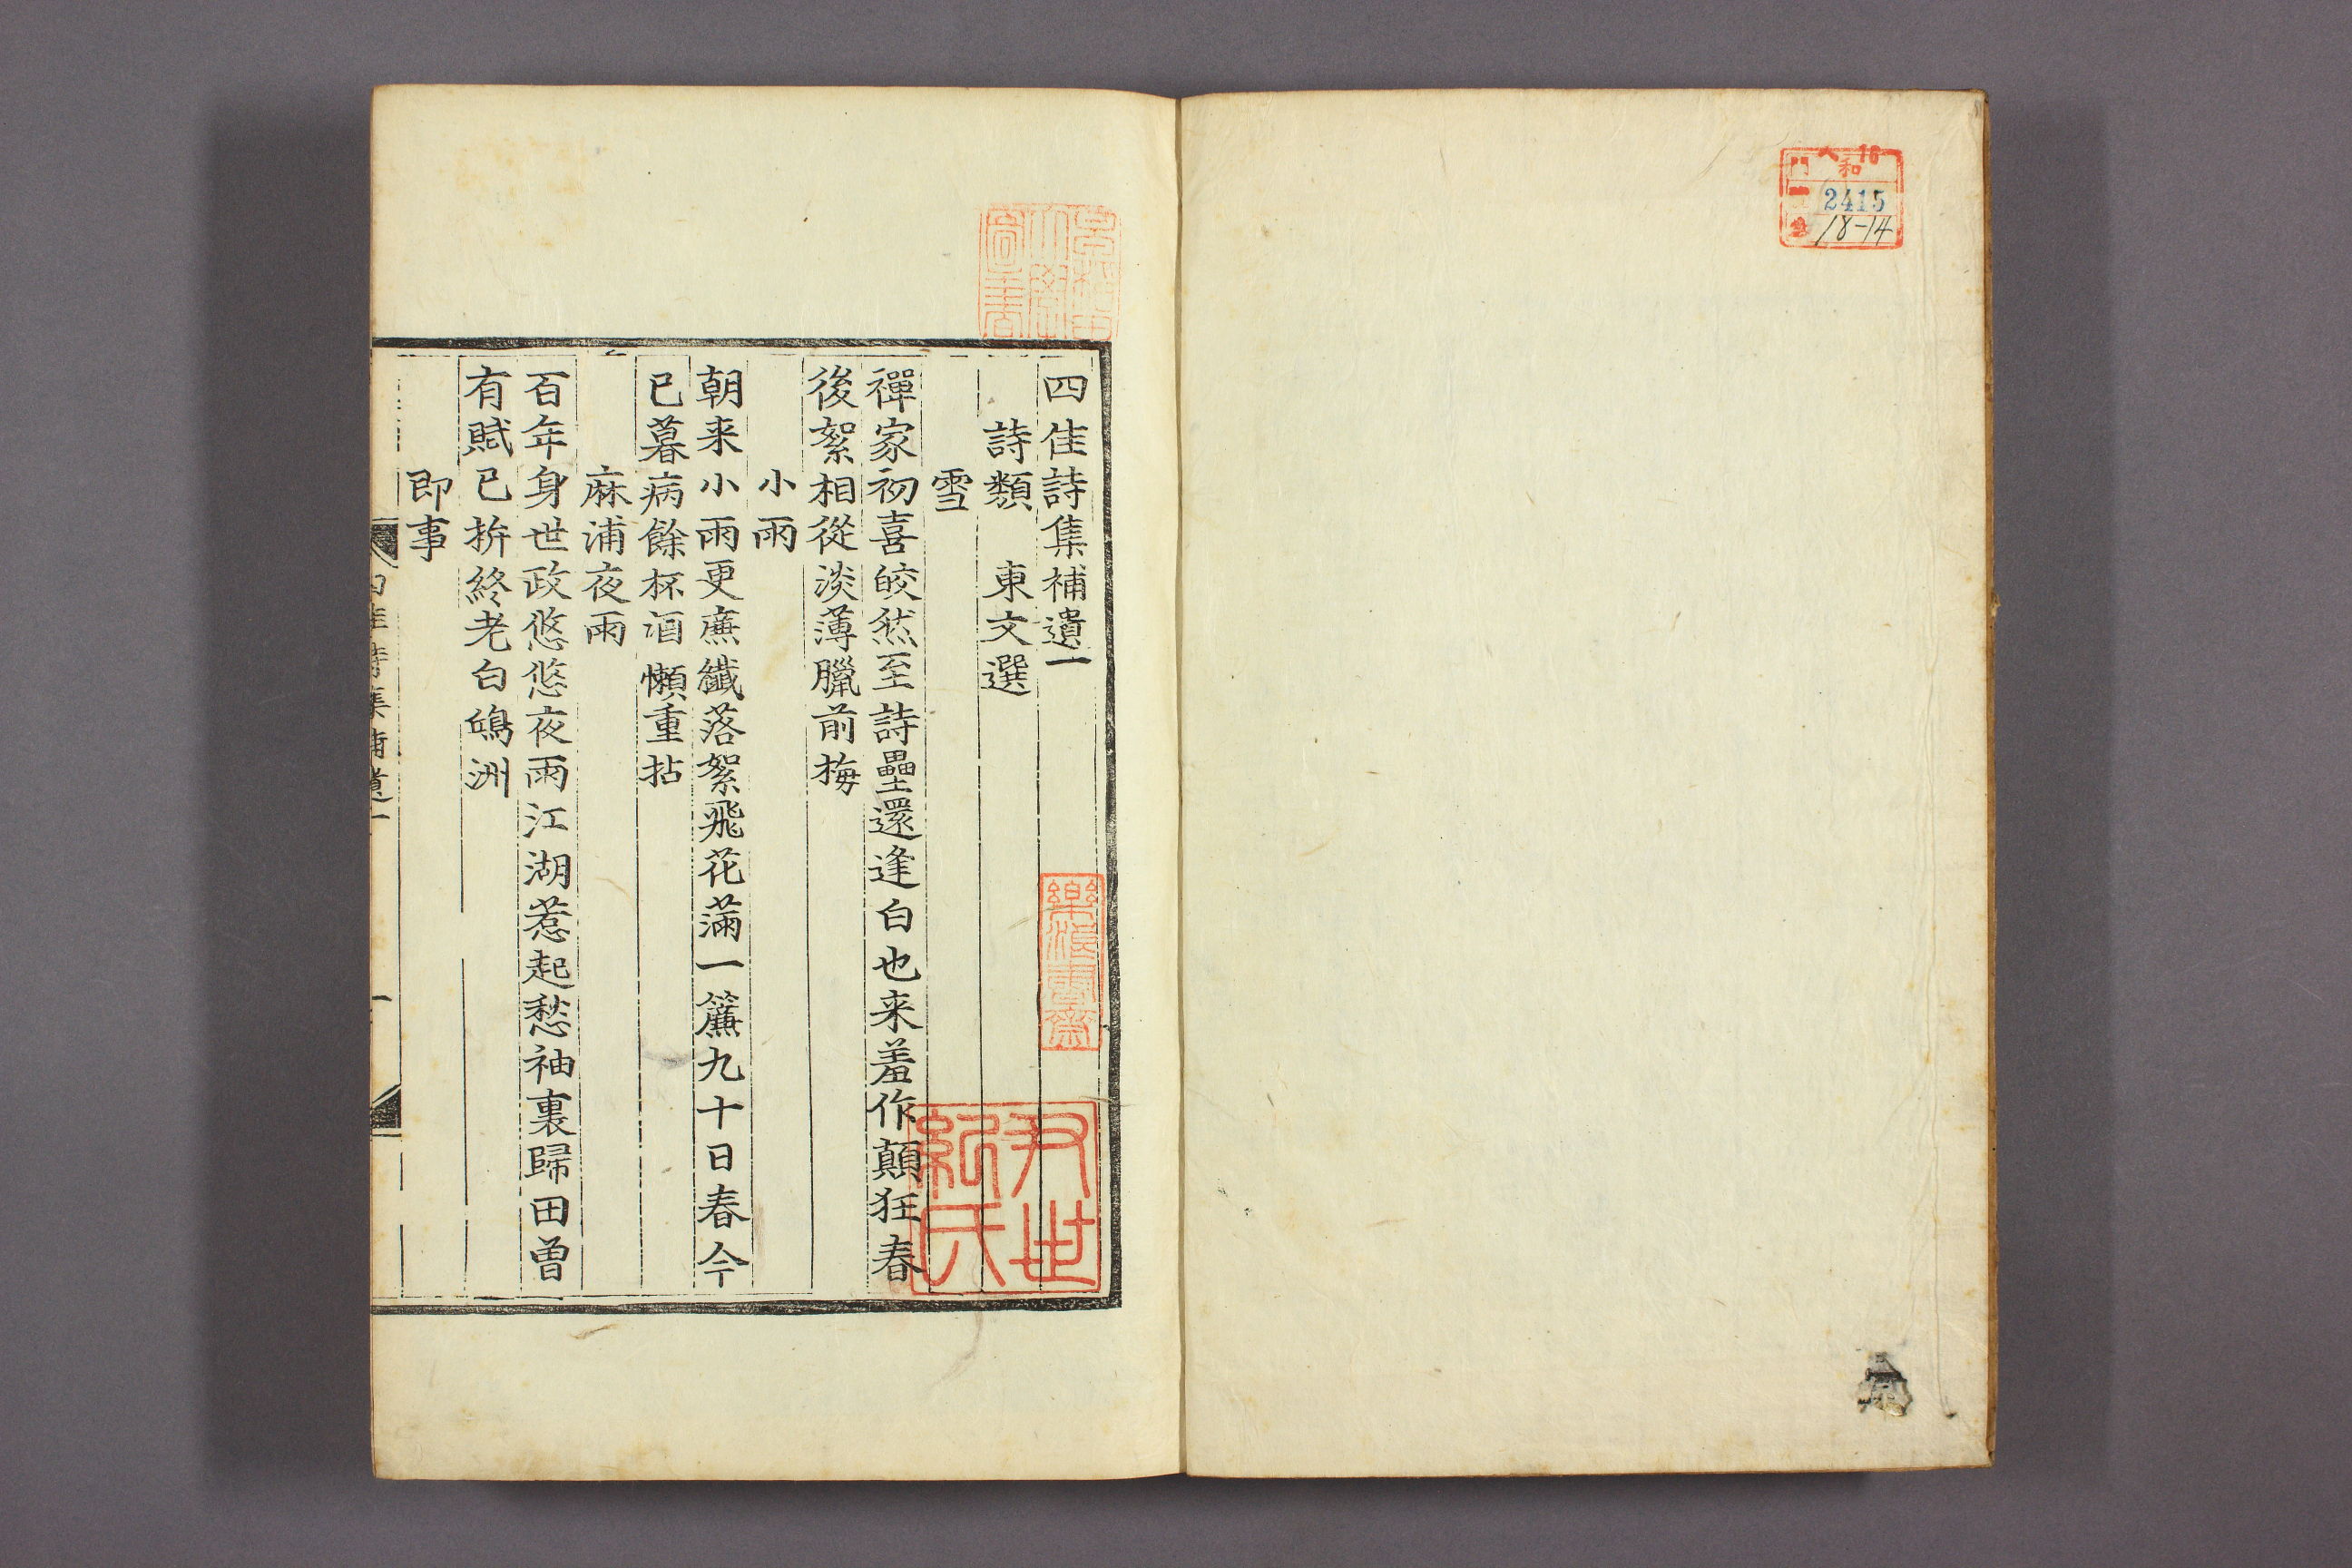 四佳詩集補遺一
詩類　東文選
雪
禪家初喜皎然至詩壘還逢白也来羞作顛狂春
後絮相從淡薄臘前梅
小雨
朝来小雨更廉纖落絮飛花滿一簾九十日春今
已暮病餘杯酒懶重拈
麻浦夜雨
百年身世政悠悠夜雨江湖惹起愁袖裏歸田曾
有賦已拚終老白鴎洲
即事
尹世
紀氏
門 和
2415
18-14